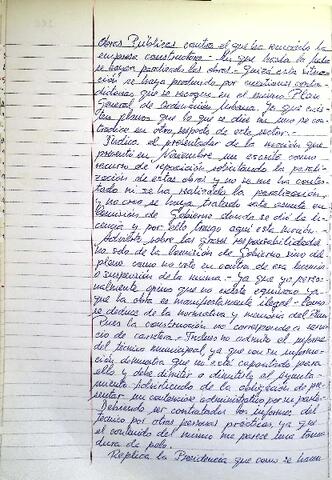 Obras Públicas contra el que ha recurrido la
empresa constructora - sin que hasta la fecha
se hayan paralizado las obras. - Quizá esta situa-
ción se haya producido por cuestiones contra-
dictorias que se recogen en el mismo Plan
General de Ordenación Urbana, ya que exis-
ten planos que lo que se dice en uno se con-
tradice en otro respecto de este sector. -
Indica el presentador de la moción que
presentó en Noviembre un escrito como
recurso de reposición solicitando la parali-
zación de estas obras y no se me ha contes-
tado ni se ha realizado la paralización
y no creo se haya tratado este asunto en
Comisión de Gobierno donde se dió la li-
cencia y por ello traigo aquí esta moción.
Advierte sobre las graves responsabilidades
no sólo de la Comisión de Gobierno sino del
pleno como no vote en contra de esa licencia
o suspensión de la misma. - ya que yo perso-
nalmente opino que no existe equívoco ya
que la obra es manifiestamente ilegal. - Como
se deduce de la normativa y memoria del Plan
pues la construcción no corresponde a servi-
cio de carretera. - Incluso no admite el informe
del técnico municipal, ya que con su informa-
ción demuestra que no está capacitado para
ello y debe dimitir o dimitirle el Ayunta-
miento. Advirtiendo de la obligación de pre-
sentar un contencioso administrativo por su parte.
Debiendo ser contratados los informes del
técnico por otras personas prácticas, ya que
el contenido del mismo me parece una toma-
dura de pelo.
Replica la Presidencia que como se han